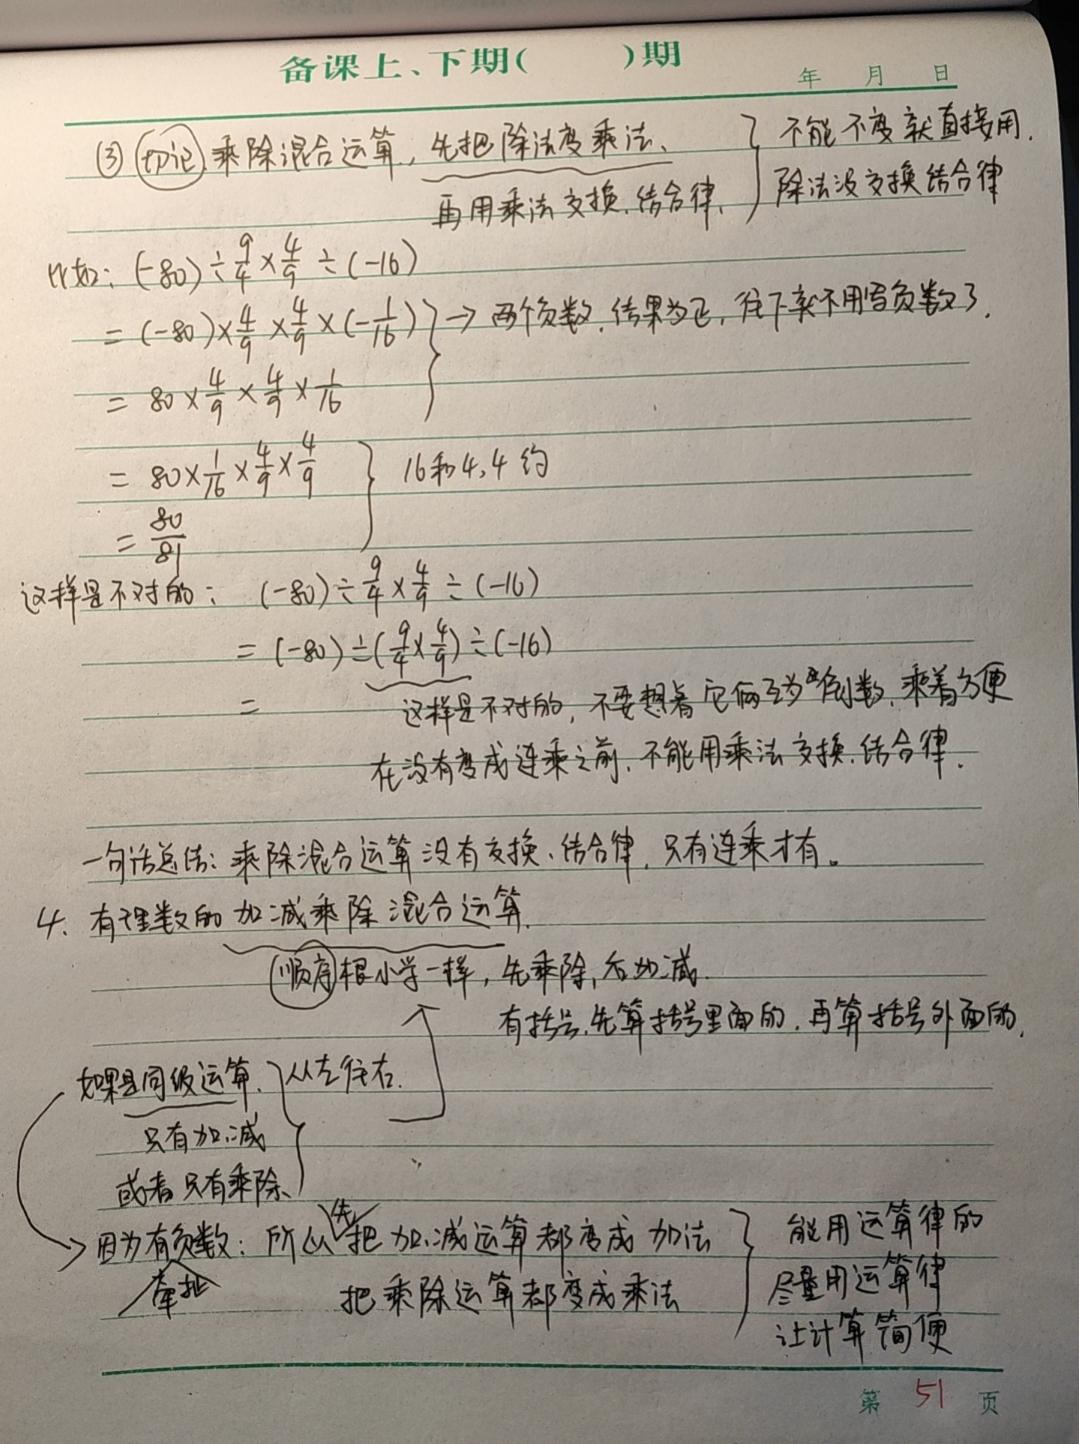 备课上、下期(　　)期
年　月　日
③ 切记 乘除混合运算, 先把除法变乘法、
再用乘法交换、结合律、
不能不变就直接用.
除法没交换结合律
比如: (-80)÷9/4×4/9÷(-16)
=(-80)×4/9×4/9×(-1/16) → 两个负数, 结果为正, 往下就不用写负数了.
=80×4/9×4/9×1/16
=80×1/16×4/9×4/9　16和4,4约
=80/81
这样是不对的: (-80)÷9/4×4/9÷(-16)
=(-80)÷(9/4×4/9)÷(-16)
=
这样是不对的, 不要想着它俩互为倒数, 乘着方便
在没有变成连乘之前, 不能用乘法交换、结合律.
一句话总结: 乘除混合运算没有交换、结合律, 只有连乘才有。
4. 有理数的加减乘除混合运算.
顺序根小学一样, 先乘除, 后加减.
有括号, 先算括号里面的, 再算括号外面的.
如果是同级运算、从左往右.
只有加、减
或者只有乘除、
因为有负数: 所以先把加、减运算都变成加法
牵扯
把乘除运算都变成乘法
能用运算律的
尽量用运算律
让计算简便
第 51 页